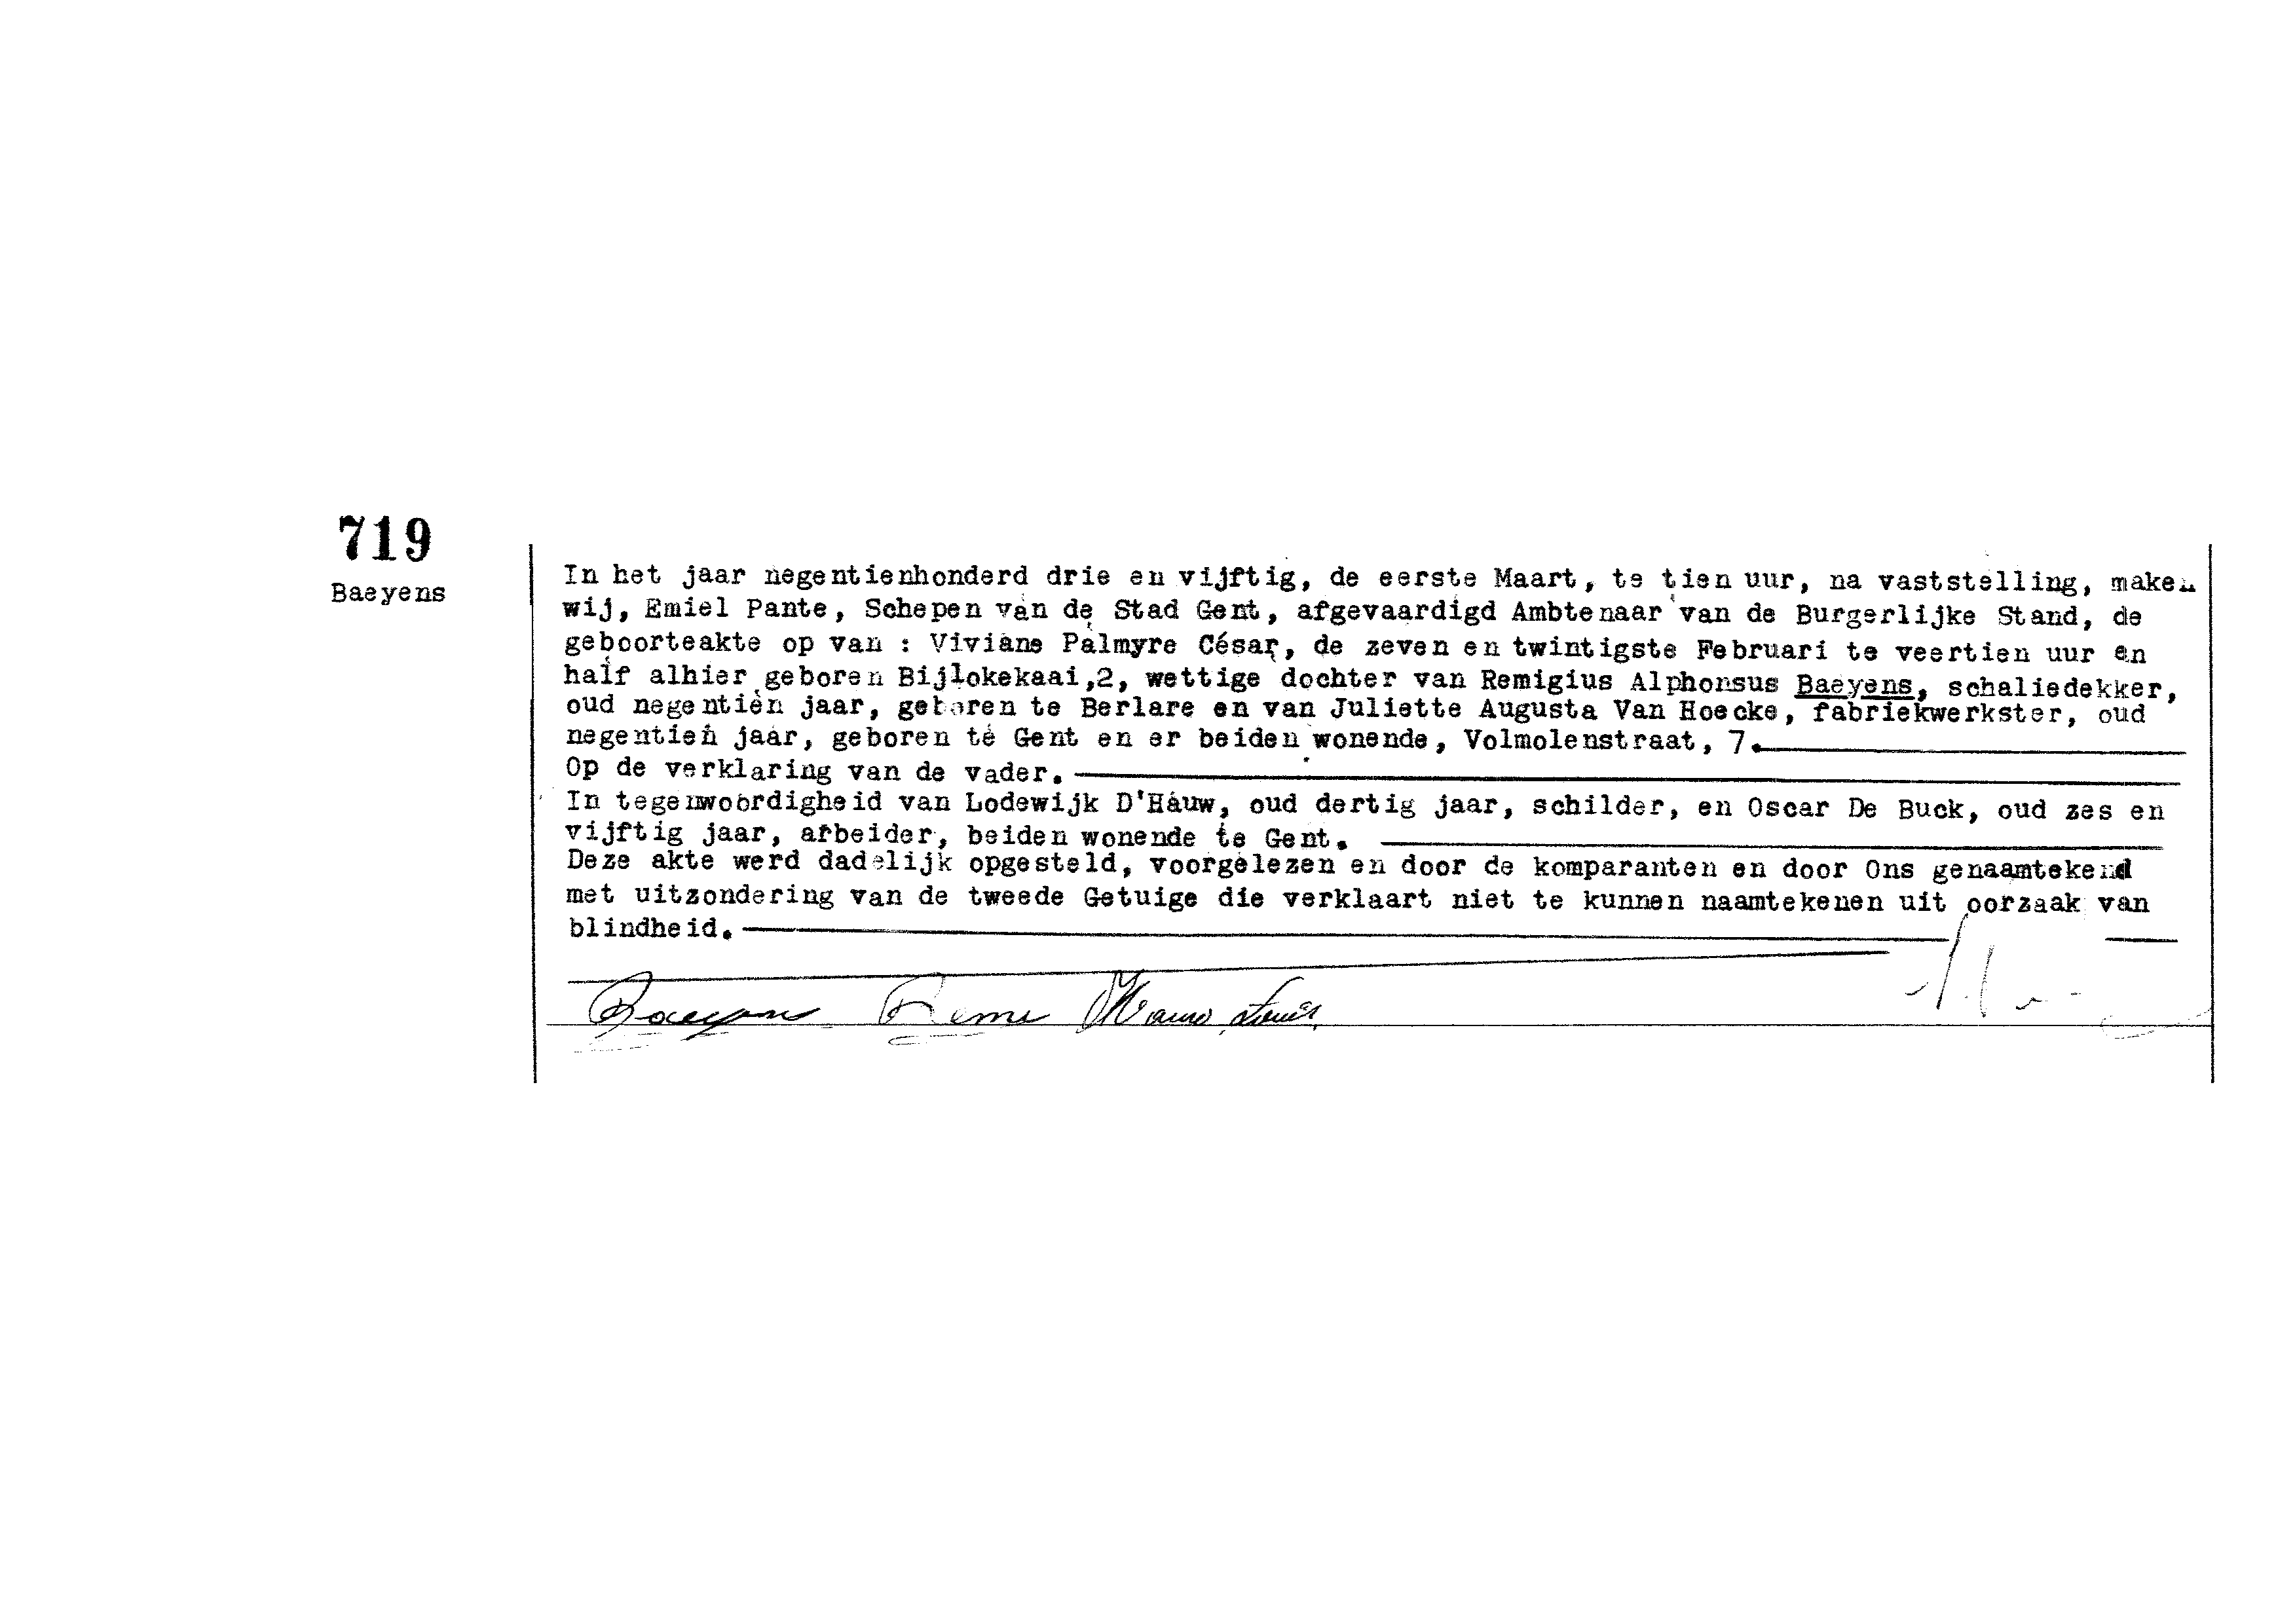 719
Baeyens
In het jaar negentienhonderd drie en vijftig, de eerste Maart, te tien uur, na vaststelling, maken
wij, Emiel Pante, Schepen van de Stad Gent, afgevaardigd Ambtenaar van de Burgerlijke Stand, de
geboorteakte op van : Viviane Palmyre César, de zeven en twintigste Februari te veertien uur en
half alhier geboren Bijlokekaai,2, wettige dochter van Remigius Alphonsus Baeyens, schaliedekker,
oud negentien jaar, geboren te Berlare en van Juliette Augusta Van Hoecke, fabriekwerkster, oud
negentien jaar, geboren te Gent en er beiden wonende, Volmolenstraat, 7.
Op de verklaring van de vader.
In tegenwoordigheid van Lodewijk D'Hauw, oud dertig jaar, schilder, en Oscar De Buck, oud zes en
vijftig jaar, arbeider, beiden wonende te Gent.
Deze akte werd dadelijk opgesteld, voorgelezen en door de komparanten en door Ons genaamtekend
met uitzondering van de tweede Getuige die verklaart niet te kunnen naamtekenen uit oorzaak van
blindheid.
Baeyens Remi D'Hauw Louis